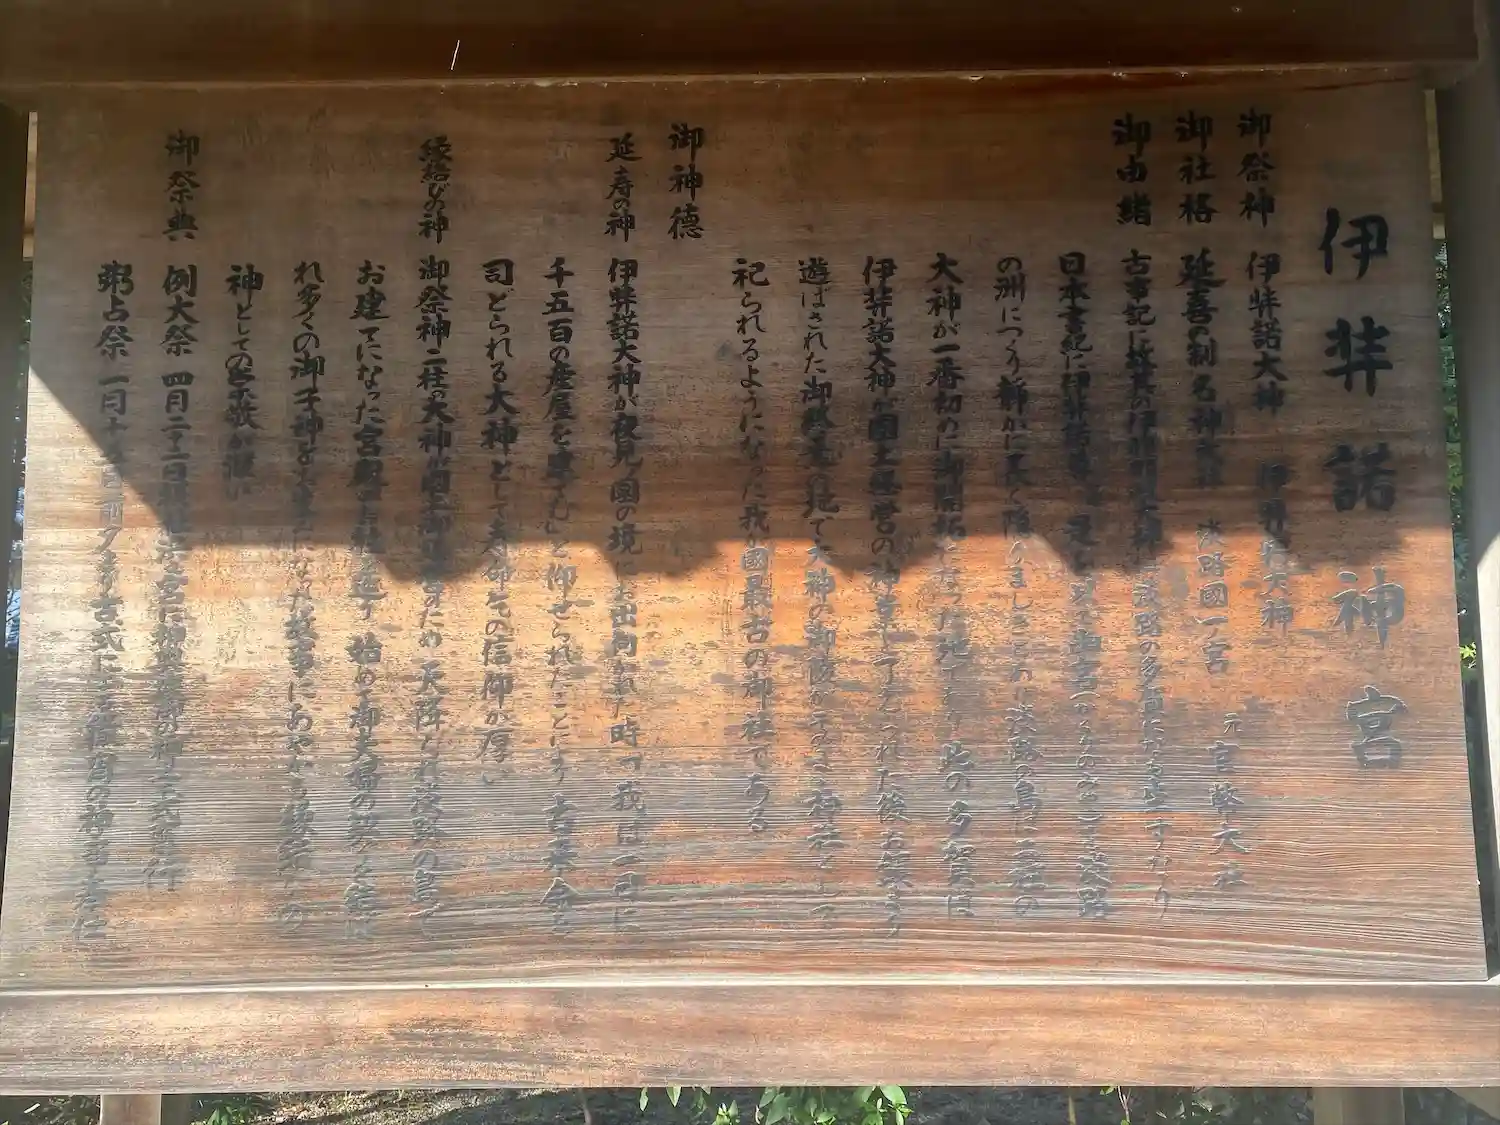 伊弉諾神宮
御祭神 伊弉諾大神 伊弉冉大神
御社格 延喜の制名神大社 淡路國一宮 元官幣大社
御由緒 古事記に故其の伊耶那岐大神は淡路の多賀になも坐すなり
日本書紀に伊弉諾尊 是を以て幽宮(かくりのみや)を淡路
の洲につくり静かに長く隠れましきとあり淡路の島は二柱の
大神が一番初めに御開拓になった地であり此の多賀は
伊弉諾大神が國土経営の神業を了えられた後お鎮まり
遊ばされた御終焉の地で大神の御陵がそのまゝ神社として
祀られるようになった我が國最古の御社である
御神徳
延寿の神 伊弉諾大神が夜見の國の境にお出向かれた時「我は一日に
千五百の産屋を建てむ」と仰せられたことにより古来命を
司どられる大神として寿命その信仰が厚い
縁結びの神 御祭神二柱の大神は國土御 ため 天降られ淡路の島で
お建てになった宮殿 始めて御夫婦の契りを結ば
れ多くの御子神をお生みになった故事にあやかる縁結びの
神としての崇敬が深い
御祭典 例大祭 四月二十二日
粥占祭 一月十五日 夕より古式による